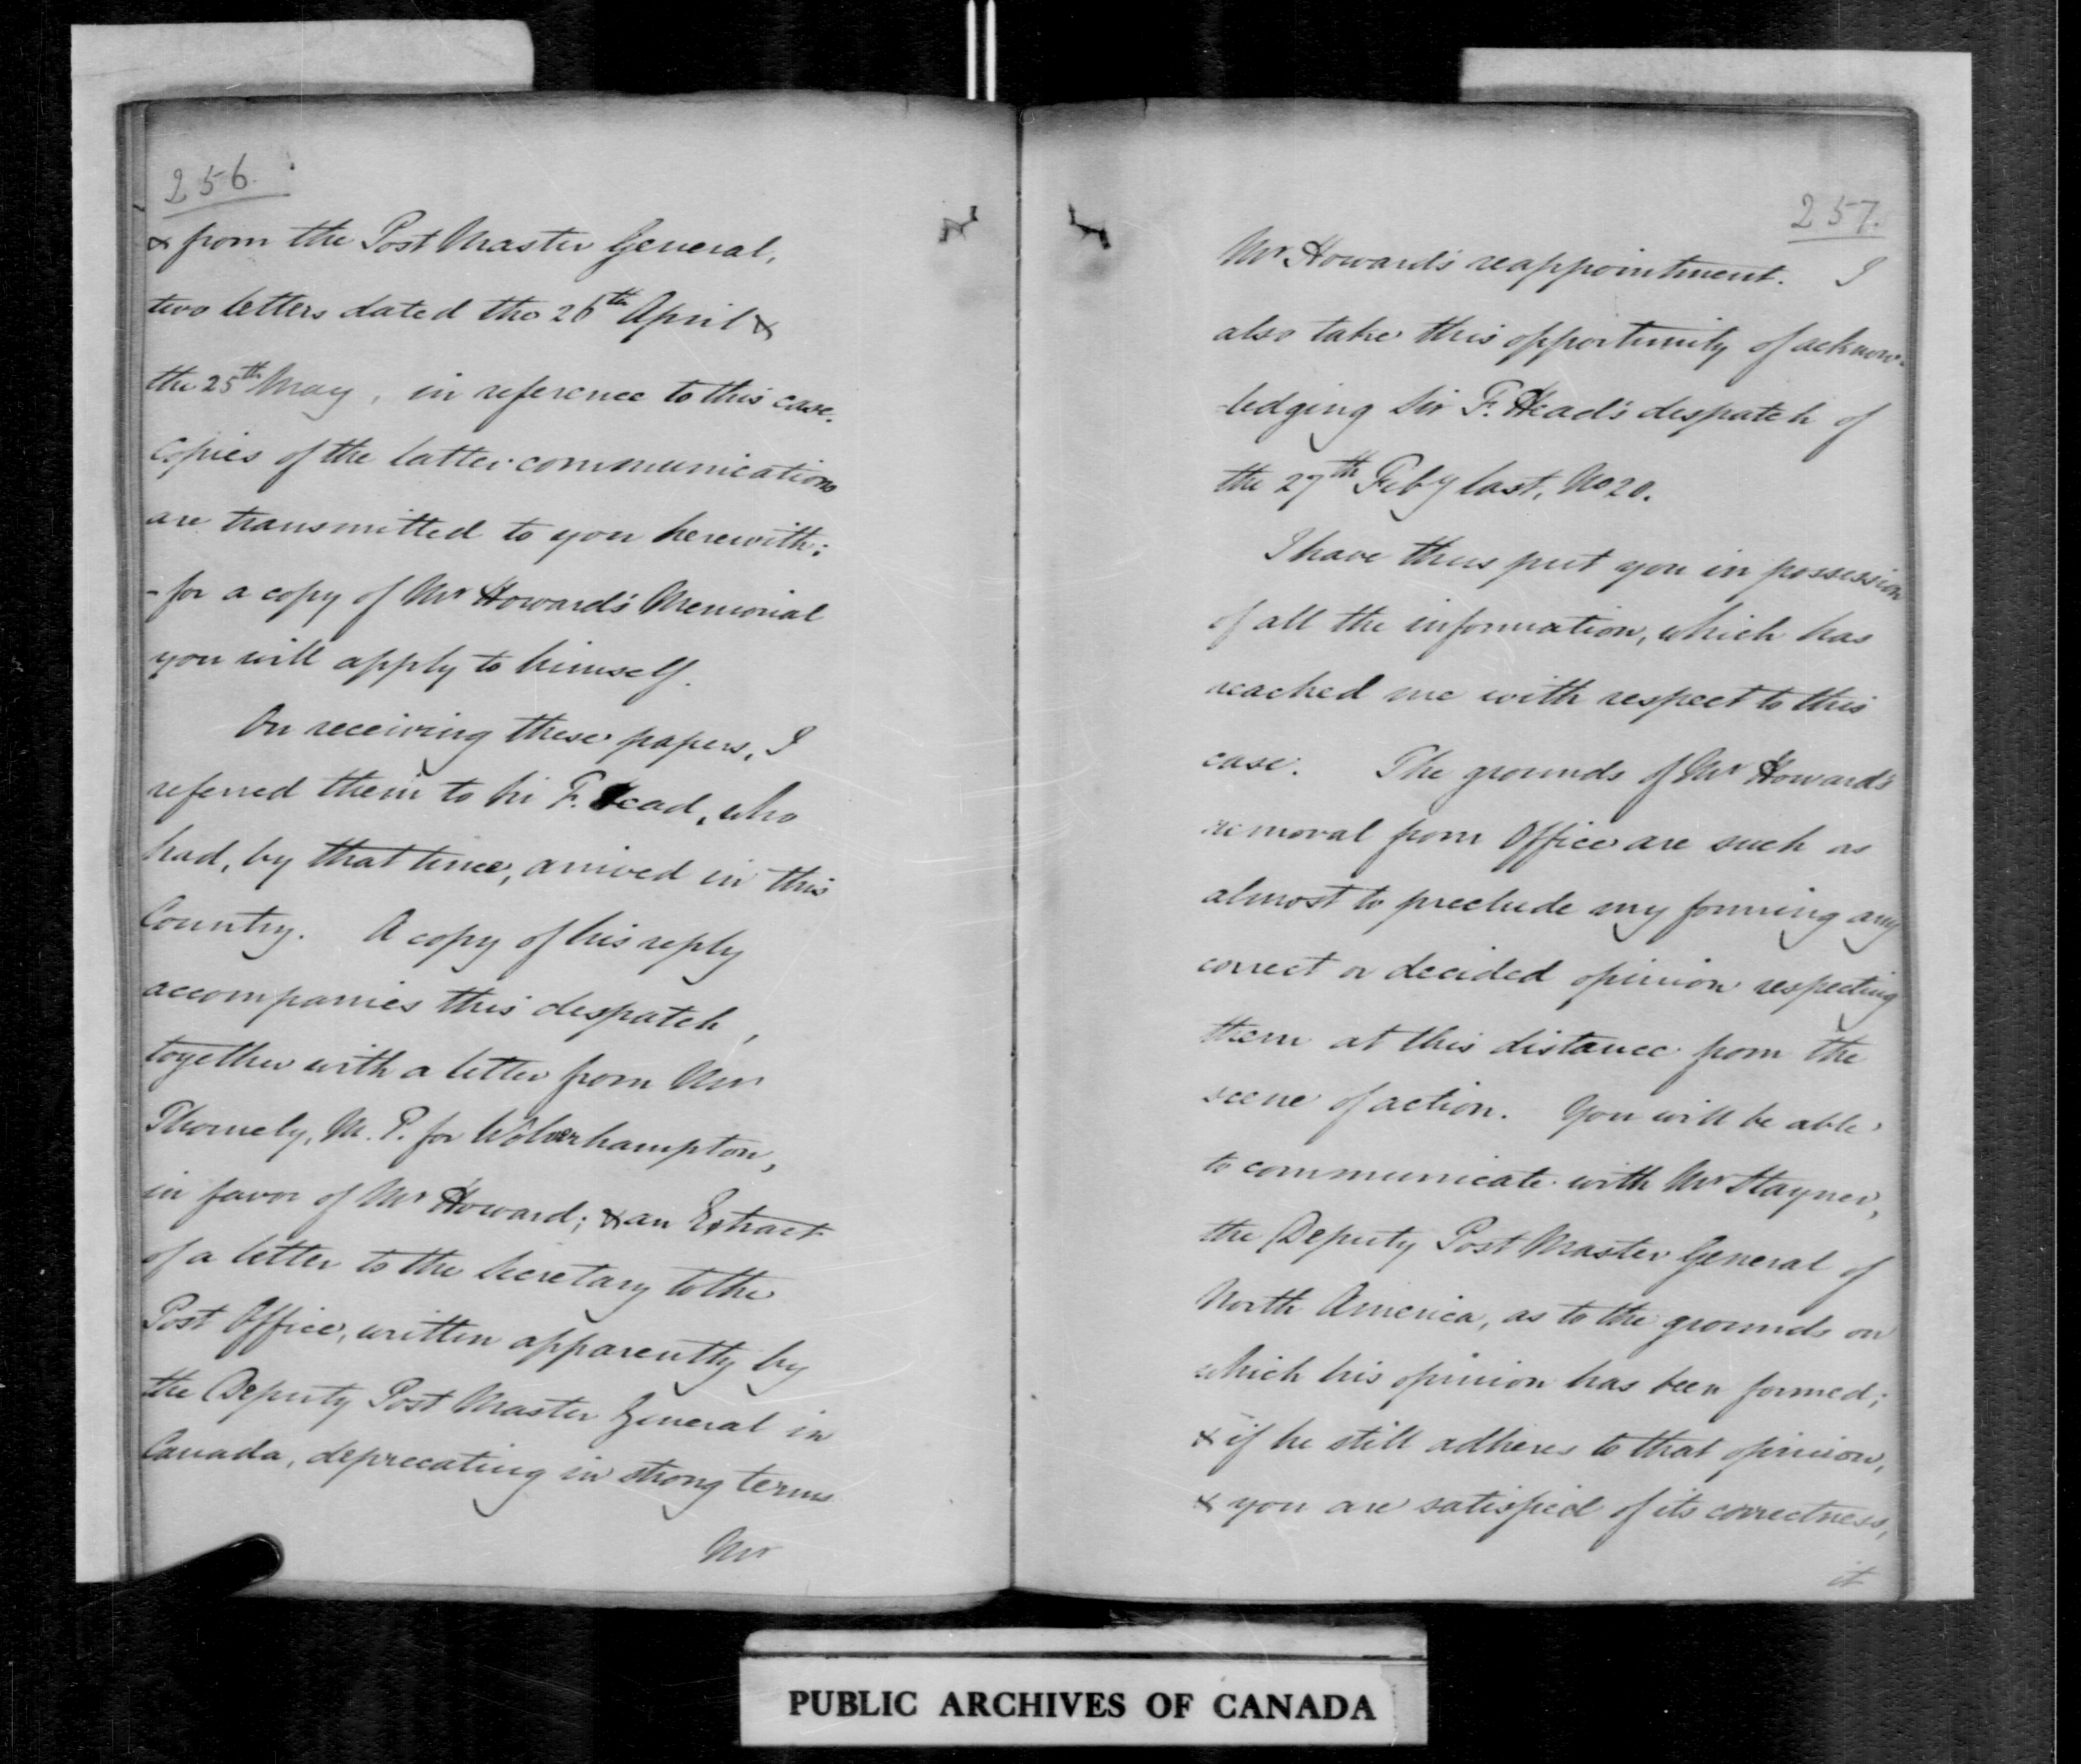 256.
& from the Post Master General,
two letters dated the 26th April &
the 25th May, in reference to this case.
Copies of the latter communications
are transmitted to you herewith;
- for a copy of Mr Howard's Memorial
you will apply to himself.
On receiving these papers, I
referred them to Sir F. Head, who
had, by that time, arrived in this
Country. A copy of his reply
accompanies this despatch,
together with a letter from Mr
Thornely, M.P. for Wolverhampton,
in favor of Mr Howard; & an Extract
of a letter to the Secretary to the
Post Office, written apparently by
the Deputy Post Master General in
Canada, deprecating in strong terms
Mr
257.
Mr Howard's reappointment. I
also take this opportunity of acknow-
-ledging Sir F. Head's despatch of
the 27th Feby last, No 20.
I have thus put you in possession
of all the information, which has
reached me with respect to this
case. The grounds of Mr Howard's
removal from Office are such as
almost to preclude my forming any
correct or decided opinion respecting
them at this distance from the
scene of action. You will be able
to communicate with Mr Stayner,
the Deputy Post Master General of
North America, as to the grounds on
which his opinion has been formed;
& if he still adheres to that opinion,
& you are satisfied of its correctness,
it
PUBLIC ARCHIVES OF CANADA